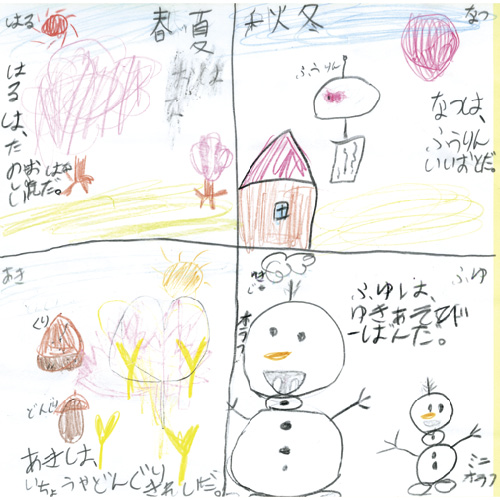 春夏秋冬
はる
はるは、たのしい
なつ
ふうりん
なつは、
ふうりん
いいおとだ。
あき
くり
どんぐり
あきは、
いちょうやどんぐりきれいだ。
ふゆ
ふゆは、
ゆきあそび
一ばんだ。
オラフ
ミニ
オラフ